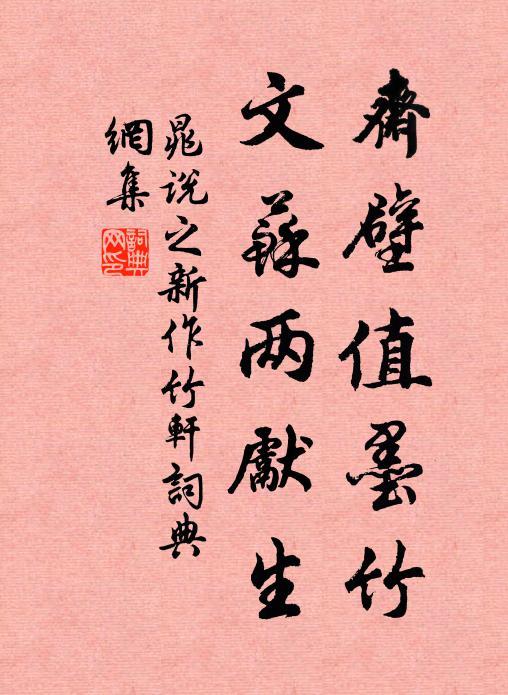 齋壁值墨竹
文蘇两獻生
晁說之新作竹軒詞典
網集
詞典網印